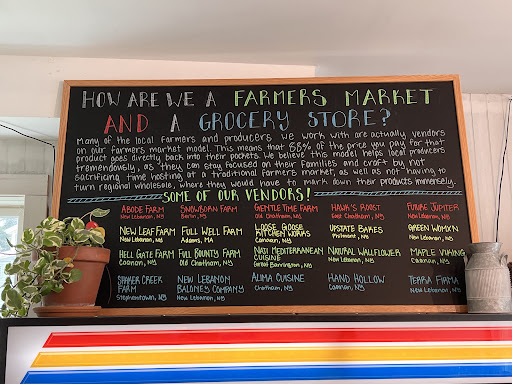 HOW ARE WE A FARMERS MARKET
AND A GROCERY STORE?
Many of the local farmers and producers we work with are actually vendors
on our farmers market model. This means that 88% of the price you pay for that
product goes directly back into their pockets. We believe this model helps local producers
tremendously, as they can stay focused on their families and craft by not
sacrificing time hosting at a traditional farmers market, as well as not having to
turn regional wholesale, where they would have to mark down their products immensely.
SOME OF OUR VENDORS!
ABODE FARM
New Lebanon, NY
SNOWBORN FARM
Berlin, NY
GENTLE TIME FARM
Old Chatham, NY
HAWK'S ROOST
East Chatham, NY
FUTURE JUPITER
New Lebanon, NY
NEW LEAF FARM
New Lebanon, NY
FULL WELL FARM
Adams, MA
LOOSE GOOSE
KITCHEN WORKS
Canaan, NY
UPSTATE BAKES
Philmont, NY
GREEN WOMXN
New Lebanon, NY
HELL GATE FARM
Canaan, NY
FULL BOUNTY FARM
Old Chatham, NY
NATJ MEDITERRANEAN
CUISINE
Great Barrington, MA
NATURAL WALLFLOWER
New Lebanon, NY
MAPLE VIKING
Canaan, NY
STARKER CREEK
FARM
Stephentown, NY
NEW LEBANON
BALONEY COMPANY
New Lebanon, NY
ALIMA CUISINE
Chatham, NY
HAND HOLLOW
Canaan, NY
TERRA FIRMA
New Lebanon, NY